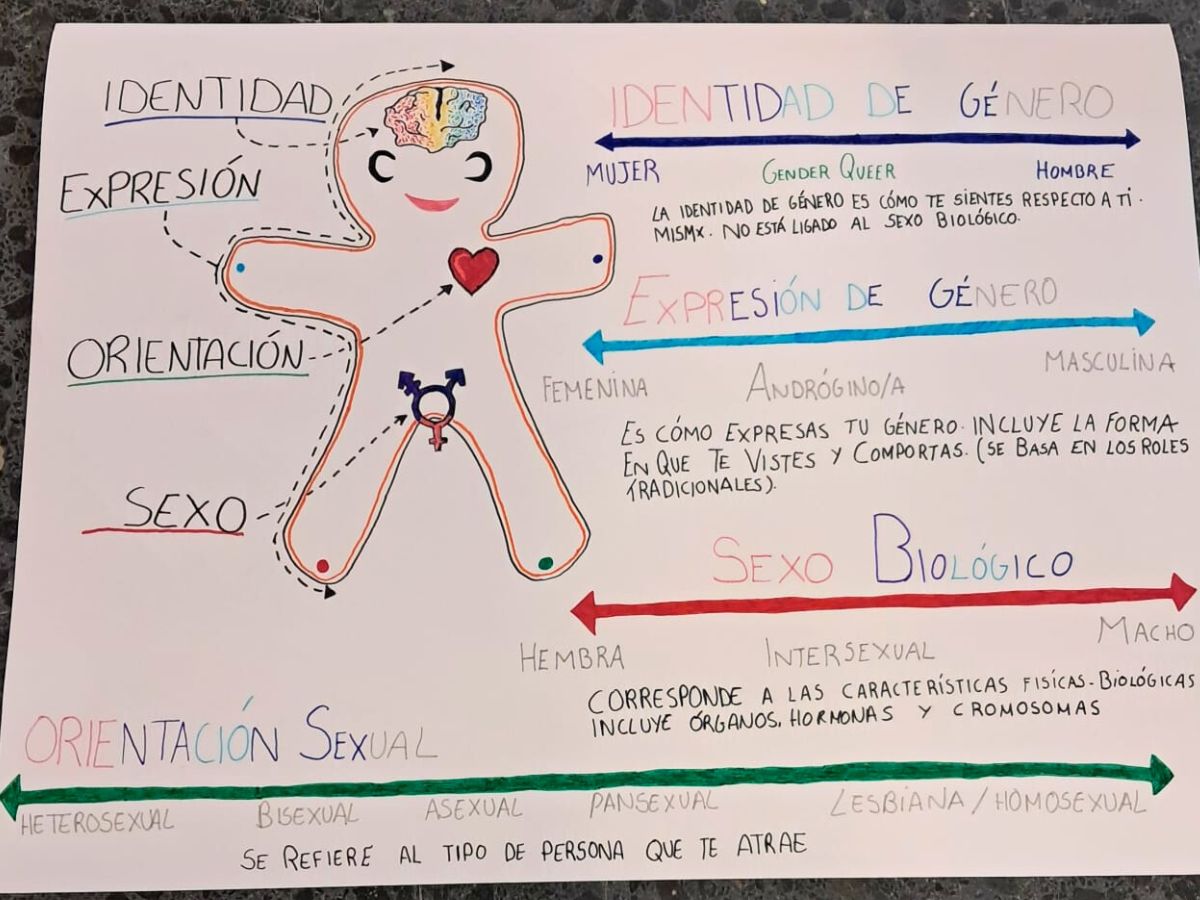 IDENTIDAD
EXPRESIÓN
ORIENTACIÓN
SEXO
IDENTIDAD DE GÉNERO
MUJER GENDER QUEER HOMBRE
LA IDENTIDAD DE GÉNERO ES CÓMO TE SIENTES RESPECTO A TI
MISMX. NO ESTÁ LIGADO AL SEXO BIOLÓGICO.
EXPRESIÓN DE GÉNERO
FEMENINA ANDRÓGINO/A MASCULINA
ES CÓMO EXPRESAS TU GÉNERO. INCLUYE LA FORMA
EN QUE TE VISTES Y COMPORTAS. (SE BASA EN LOS ROLES
TRADICIONALES).
SEXO BIOLÓGICO
HEMBRA INTERSEXUAL MACHO
CORRESPONDE A LAS CARACTERÍSTICAS FISÍCAS-BIOLÓGICAS
INCLUYE ÓRGANOS, HORMONAS Y CROMOSOMAS
ORIENTACIÓN SEXUAL
HETEROSEXUAL BISEXUAL ASEXUAL PANSEXUAL LESBIANA / HOMOSEXUAL
SE REFIERE AL TIPO DE PERSONA QUE TE ATRAE